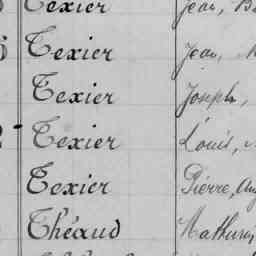 Texier Jean,
Texier Jean,
Texier Joseph,
Texier Louis,
Texier Pierre,
Théaud Mathurin